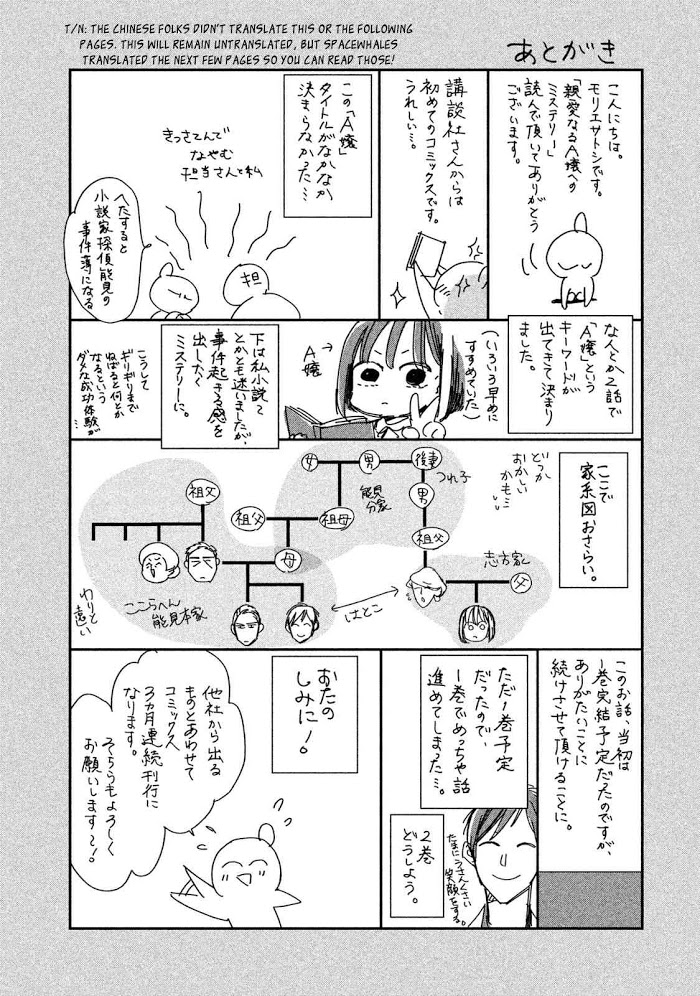 T/N: THE CHINESE FOLKS DIDN'T TRANSLATE THIS OR THE FOLLOWING
PAGES. THIS WILL REMAIN UNTRANSLATED, BUT SPACEWHALES
TRANSLATED THE NEXT FEW PAGES SO YOU CAN READ THOSE!
あとがき
こんにちは。
モリエサトシです。
「親愛なるA嬢への
ミステリー」
読んで頂いてありがとう
ございます。
講談社さんからは
初めてのコミックスです。
うれしい…。
この「A嬢」
タイトルがなかなか
決まらなかった…
きっさてんで
なやむ
担当さんと私
担
へたすると
小説家探偵能見の
事件簿になる
なんとか2話で
「A嬢」という
キーワードが
出てきて決まり
ました。
(いろいろ早めに
すすめていた)
A嬢
下は私小説て
とかとも迷いましたが、
事件起きる感を
出したく
ミステリーに。
こうして
ギリギリまで
ねばると何とか
なるという
ダメな成功体験が…
ここで
家系図おさらい。
どっか
おかしい
かも…
女
男
後妻
つれ子
男
能見
分家
祖父
祖父
祖母
祖父
母
志方家
父
はとこ
ここらへん
能見本家
わりと
遠い
このお話、当初は
1巻完結予定だったのですが、
ありがたいことに
続けさせて頂けることに。
ただ1巻予定
だったので、
1巻でめっちゃ話
進めてしまった…。
2巻
どうしよう。
たまにうさんくさい
笑顔をする。
おたの
しみに!
他社から出る
ものとあわせて
コミックス
3ヵ月連続刊行に
なります。
そちらもよろしく
お願いします~!